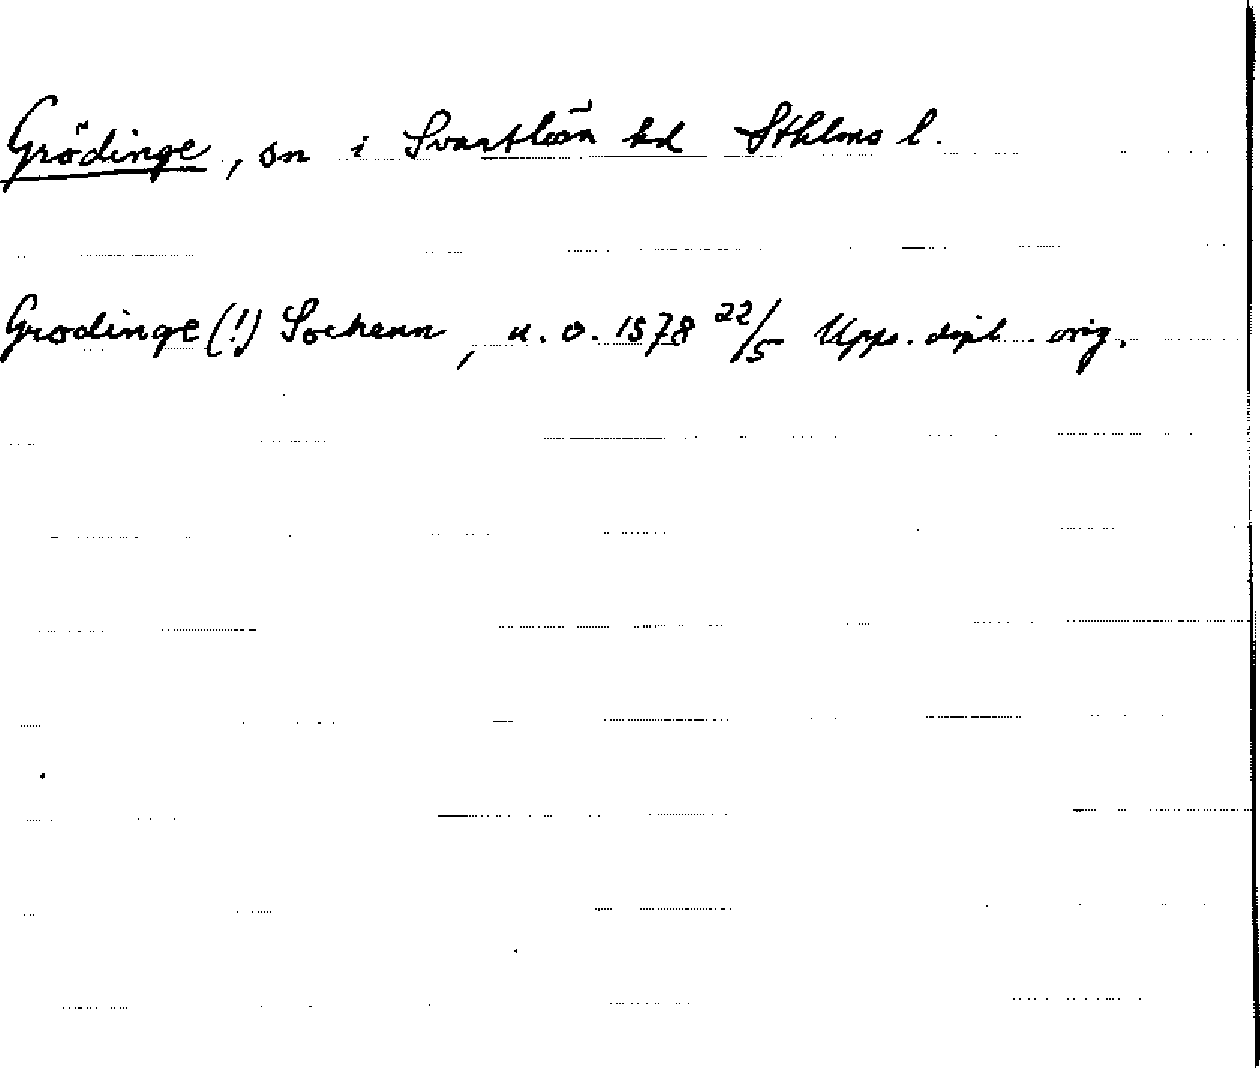 Grödinge, sn i Svartlösa hd Sthlms l.
Grodinge (!) Sochenn, u. o. 1578 22/5 Upps. dipl. orig.